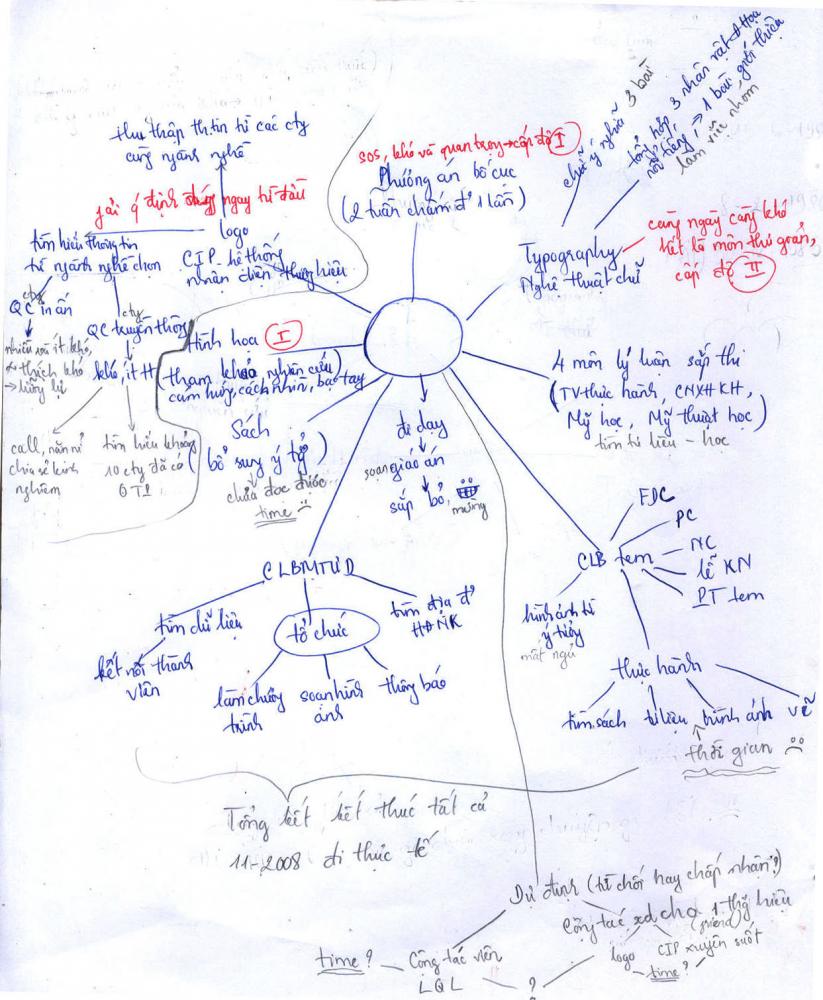 thu thập thtin từ các cty
cùng ngành nghề
phải ý định đúng ngay từ đầu
logo
tìm hiểu thông tin
từ ngành nghề chọn
CIP hệ thống
nhận diện thương hiệu
cty
QC in ấn
nhiều và ít khó,
thích khó
cty
QC truyền thông
khó, ít
call, năn nỉ
chia sẻ kinh
nghiệm
tìm hiểu khoảng
10 cty đã có
sos, khó và quan trọng → cấp độ I
Phương án bố cục
(2 tuần chấm đ' 1 lần)
chữ ý nghĩa 3 bài
tổng hợp, 3 nhân vật đ hoạ
nổi tiếng, → 1 bài giới thiệu
làm việc nhóm
Typography
Nghệ thuật chữ
càng ngày càng khó
hết là môn thư giãn,
cấp độ II
Hình hoạ I
(tham khảo nghiên cứu
cảm hứng, cách nhìn, bạo tay
Sách
(bổ sung ý tg)
chưa đọc được...
time
đi dạy
soạn giáo án
sắp bỏ,
mừng
4 môn lý luận sắp thi
(TV thực hành, CNXHKH,
Mỹ học, Mỹ thuật học)
tìm tài liệu – học
CLBMTƯD
tìm dữ liệu
kết nối thành
viên
tổ chức
làm chương
trình
soạn hình
ảnh
thông báo
tìm địa đ'
HĐNK
CLB tem
FDC
PC
NC
lễ KN
PT tem
hình ảnh từ
ý tưởng
mất ngủ
thực hành
tìm sách
tài liệu
hình ảnh
vẽ
thời gian
Tổng kết, kết thúc tất cả
11-2008 đi thực tế
Dự định (từ chối hay chấp nhận?)
Cộng tác xd cho 1 thg hiệu
(friend)
logo
CIP xuyên suốt
time?
time?
Cộng tác viên
LQL
?